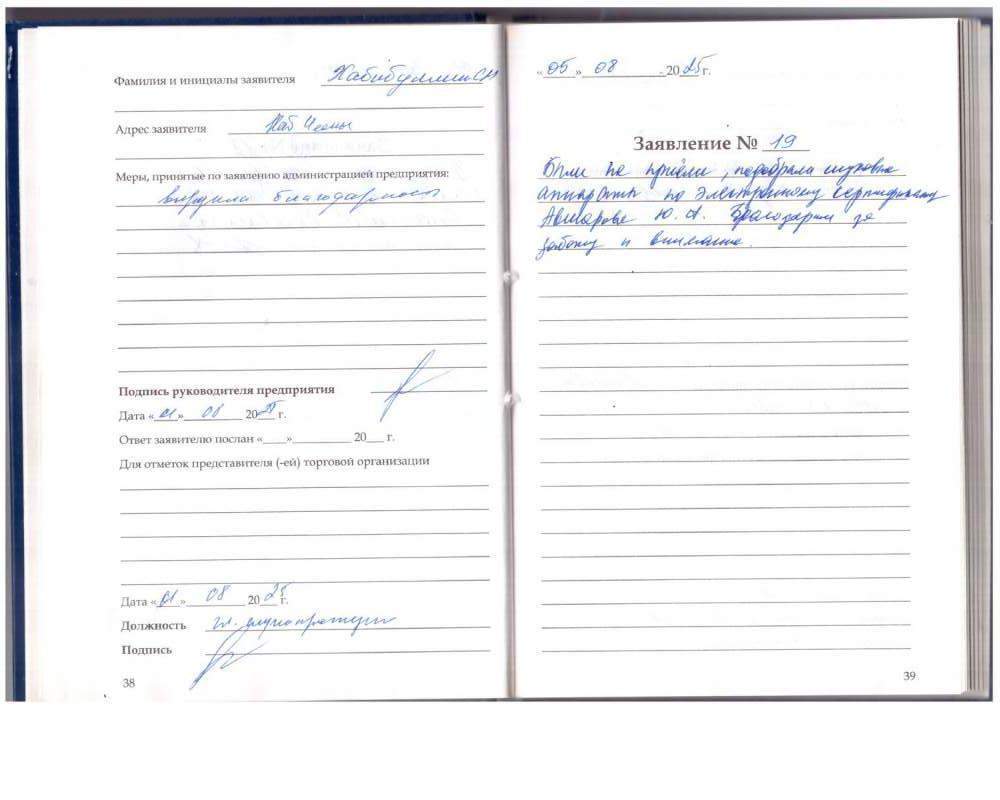 Фамилия и инициалы заявителя Хабибуллин С Н
Адрес заявителя Наб Челны
Меры, принятые по заявлению администрацией предприятия:
выразила благодарность
Подпись руководителя предприятия
Дата «01» 08 2025 г.
Ответ заявителю послан «___»__________ 20___ г.
Для отметок представителя (-ей) торговой организации
Дата «01» 08 2025 г.
Должность
Подпись
38
«05» 08 - 2025г.
Заявление № 19
Были на приёме, подобрала слуховые
аппараты по электронному сертификату
Ю. А. Благодарим за
заботу и внимание.
39